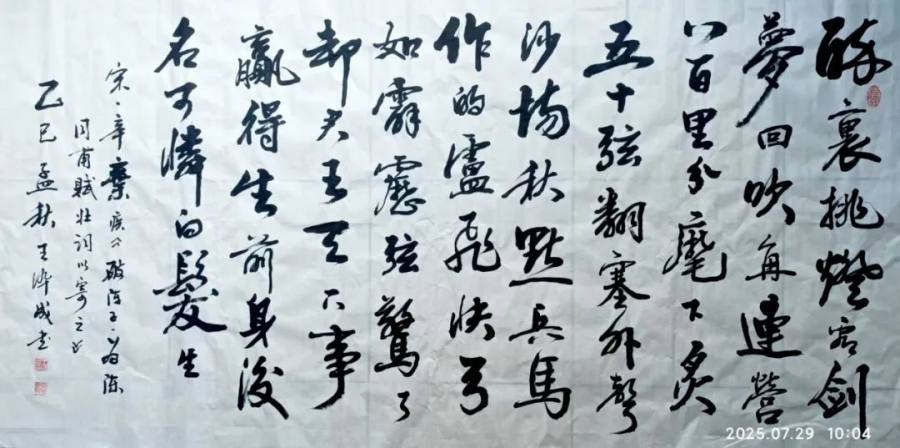 醉裏挑燈看剑
夢回吹角連營
八百里分麾下炙
五十弦翻塞外聲
沙場秋點兵馬
作的盧飛快弓
如霹靂弦驚了
却君王天下事
赢得生前身後
名可憐白髮生
宋·辛棄疾公破陣子·為陈
同甫賦壯詞以寄之
乙巳孟秋王成书
2025.07.29 10:04